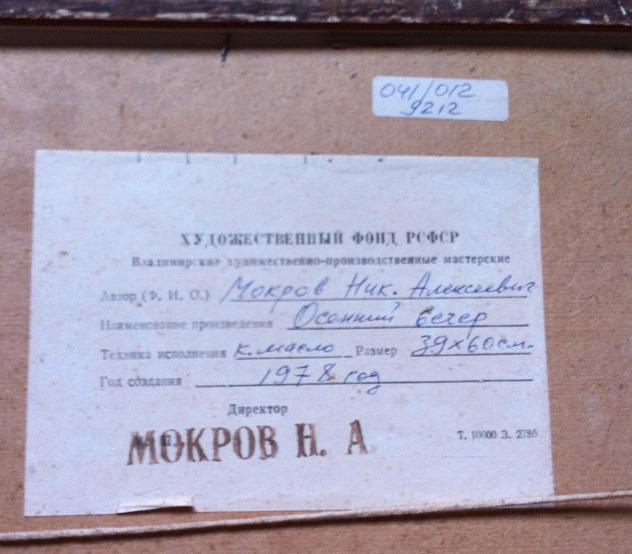 041/012
9212
ХУДОЖЕСТВЕННЫЙ ФОНД РСФСР
Владимирские художественно-производственные мастерские
Автор (Ф. И. О.) Мокров Ник. Алексеевич
Наименование произведения Осенний вечер
Техника исполнения к.масло Размер 39х60см.
Год создания 1978 год
Директор
МОКРОВ Н. А
Т. 10000 З. 2786